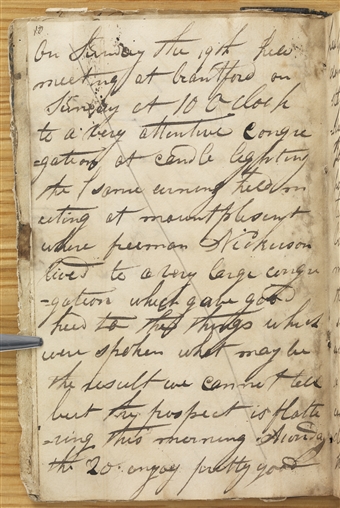 10
On Sunday the 19th held
meeting at brantford on
Sunday at 10 O Clock
to a very attentive congre
=gation at candle lighting
the same evning held m
eeting at mountplesent
where freeman Nickerson
lived to a very large congre
=gation which gave good
heed to the things which
were spoken what may be
the result we cannot tell
but the prospect is flatte
-ring this morning Monday
the 20 enjoy pretty good